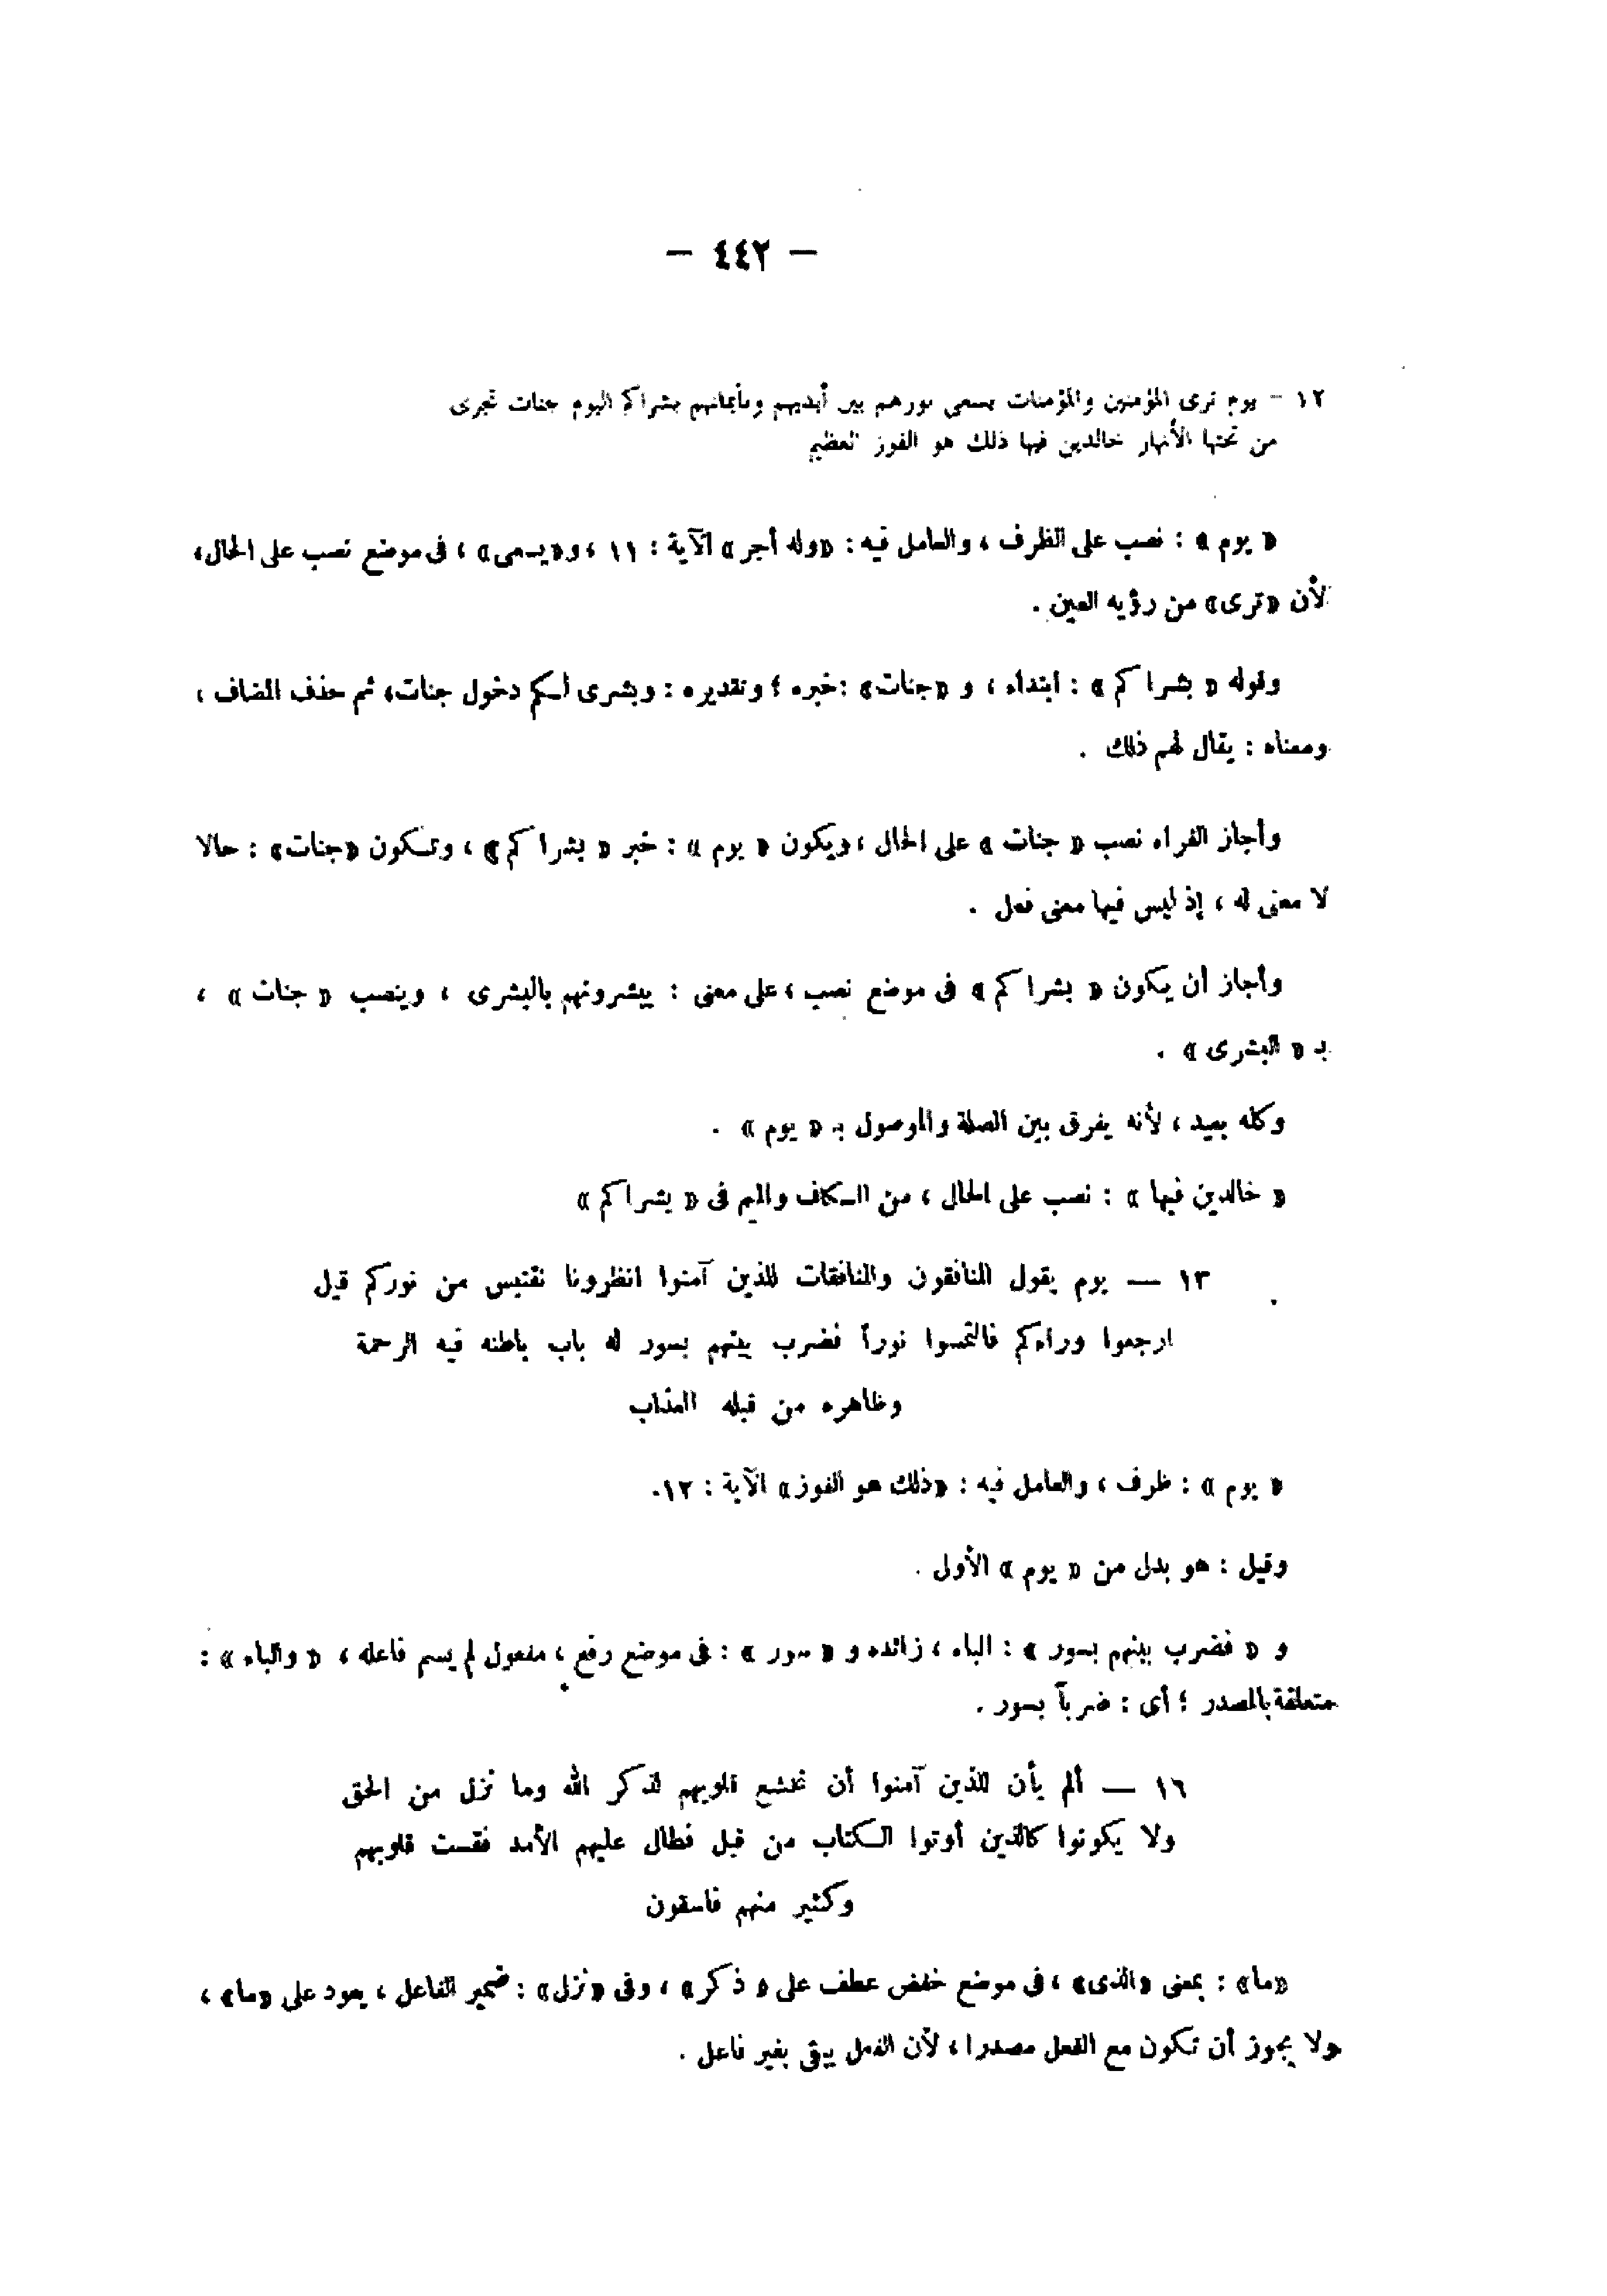 — ٤٤٢ —
١٢ – يوم ترى المؤمنين والمؤمنات يسعى نورهم بين أيديهم وبأيمانهم بشراكم اليوم جنات تجرى
من تحتها الأنهار خالدين فيها ذلك هو الفوز العظيم
« يوم » : نصب على الظرف ، والعامل فيه : «وله أجر» الآية : ١١ ، و«يسعى» ، فى موضع نصب على الحال،
لأن «ترى» من رؤيه العين .
وقوله « بشراكم » : ابتداء ، و «جنات» :خبره ؛ وتقديره : وبشرى لكم دخول جنات، ثم حذف المضاف ،
ومعناه : يقال لهم ذلك .
وأجاز الفراء نصب « جنات » على الحال ، ويكون « يوم » : خبر « بشراكم» ، وتكون «جنات» : حالا
لا معنى له ، إذ ليس فيها معنى فعل .
وأجاز أن يكون « بشراكم » فى موضع نصب ، على معنى : يبشرونهم بالبشرى ، وينصب « جنات » ،
بـ « البشرى » .
وكله بعيد ، لأنه يفرق بين الصلة والموصول بـ « يوم » .
« خالدين فيها » : نصب على الحال ، من الكاف والميم فى « بشراكم »
١٣ — يوم يقول المنافقون والمنافقات للذين آمنوا انظرونا نقتبس من نوركم قيل
ارجعوا وراءكم فالتمسوا نوراً فضرب بينهم بسور له باب باطنه فيه الرحمة
وظاهره من قبله العذاب
« يوم » : ظرف ، والعامل فيه : «ذلك هو الفوز» الآية : ١٢.
وقيل : هو بدل من « يوم » الأول .
و « فضرب بينهم بسور » : الباء ، زائده و « سور » : فى موضع رفع ، مفعول لم يسم فاعله ، « والباء » :
متعلقة بالمصدر ؛ أى : ضرباً بسور .
١٦ — ألم يأن للذين آمنوا أن تخشع قلوبهم لذكر الله وما نزل من الحق
ولا يكونوا كالذين أوتوا الكتاب من قبل فطال عليهم الأمد فقست قلوبهم
وكثير منهم فاسقون
«ما» : بمعنى «الذى» ، فى موضع خفض عطف على « ذكر» ، وفى «نزل» : ضمير الفاعل ، يعود على «ما» ،
ولا يجوز أن تكون مع الفعل مصدرا ، لأن الفعل يبقى بغير فاعل .